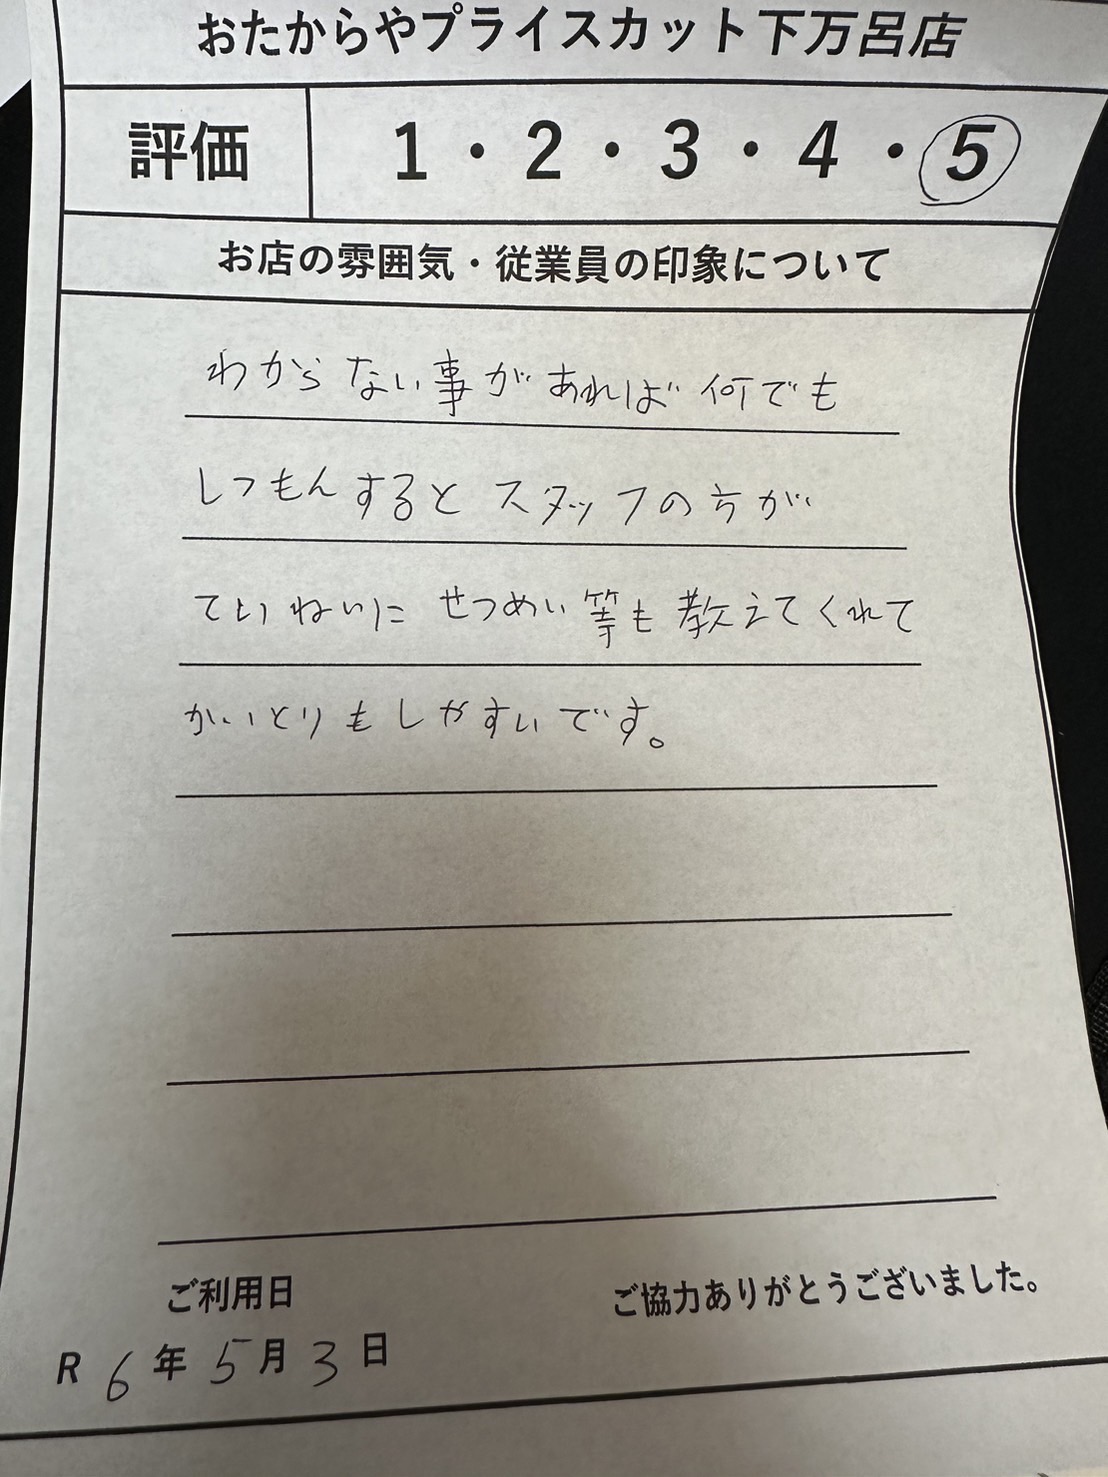 おたからやプライスカット下万呂店
評価 1・2・3・4・5
お店の雰囲気・従業員の印象について
わからない事があれば何でも
しつもんするとスタッフの方が
ていねいに せつめい等も教えてくれて
かいとりもしやすいです。
ご利用日
ご協力ありがとうございました。
R 6 年 5 月 3 日